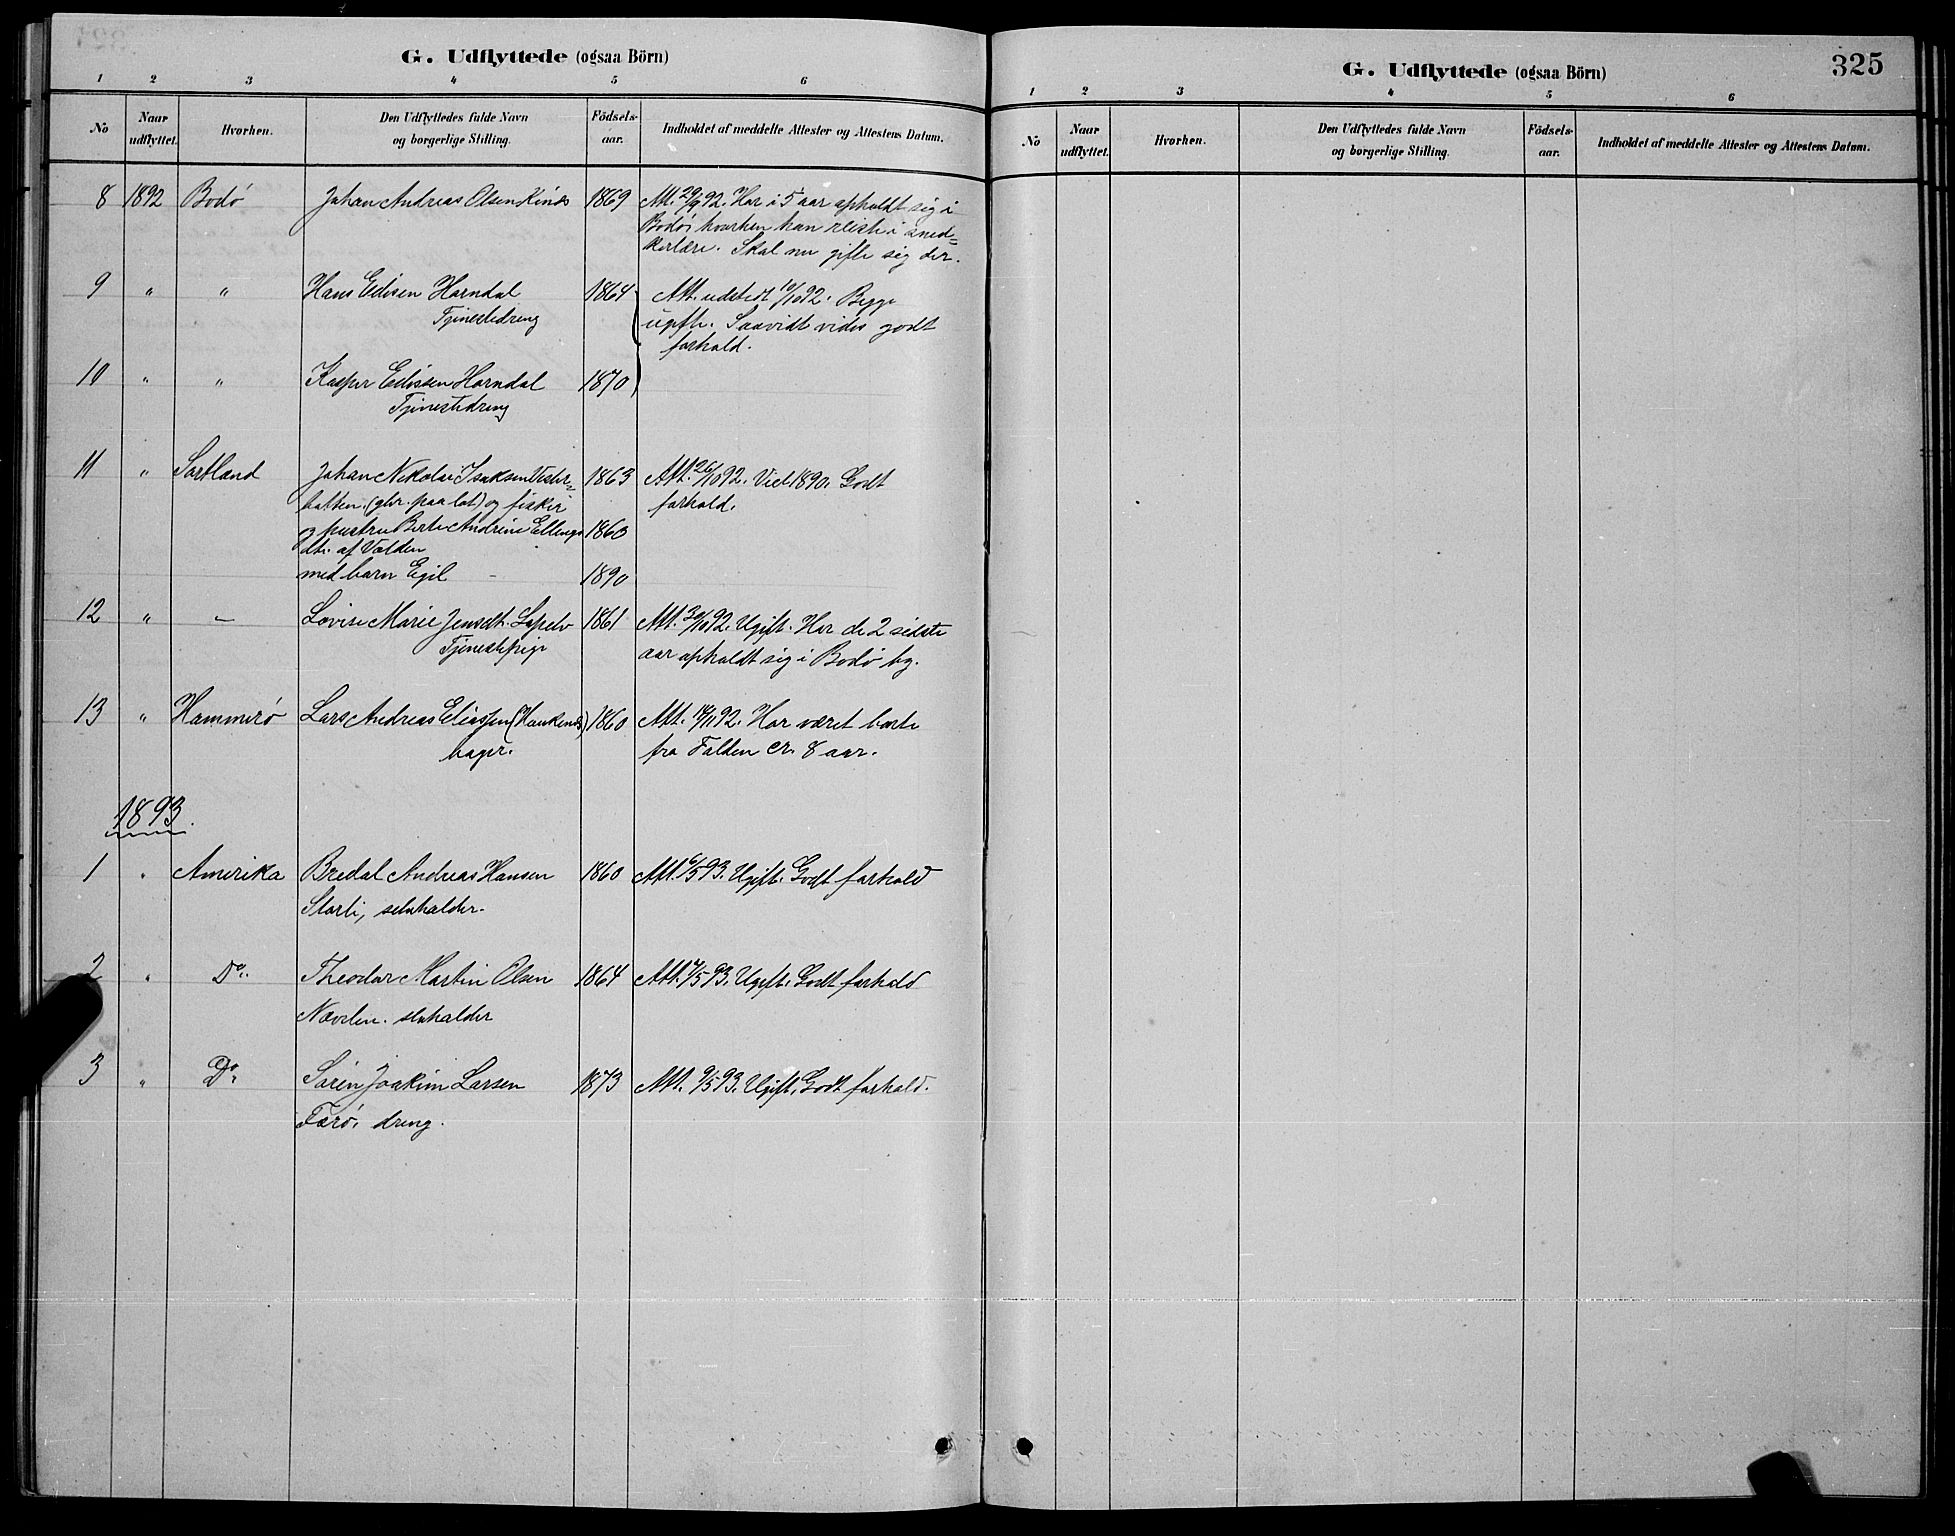 G. Udflyttede (ogsaa Börn)
1 2 3 4 5 6
No Naar udflyttet. Hvorhen. Den Udflyttedes fulde Navn og borgerlige Stilling. Födsels-aar. Indholdet af meddelte Attester og Attestens Datum.
8 1892 Bodö Johan Andreas Olsen 1869 Att. 29/9 92. Har i 5 aar opholdt sig i
Bodö, hvorhen han reiste i sned=
kerlære. Skal nu gifte sig der.
9 " " Hans Edisen Horndal 1864 Att. udstedt 10/10 92. Begge
Tjenestedreng ugifte. Saavidt vides godt
forhold.
10 " " Kasper Edissen Horndal 1870
Tjenestedreng
11 " Sortland Johan Nikolai Isaksen Vester= 1863 Att. 26/10 92. Viet 1890. Godt
botten. (gbr. paa lot) og fisker forhold.
og hustru Berte Andrine Ellings 1860
dtr. af Valden
med barn Egil - 1890
12 " - Lovise Marie Jensdt. 1861 Att. 30/10 92. Ugift. Har de 2 sidste
Tjenestepige aar opholdt sig i Bodö by.
13 " Hammerö Lars Andreas Eliassen (Haukenes) 1860 Att. 18/11 92. Har været borte
bager. fra Folden cr. 8 aar.
1893.
1 " Amerika Bredal Andreas Hansen 1860 Att. 6/5 93. Ugift. Godt forhold
Storli, selvholder.
2 " Do. Theodor Martin Olsen 1864 Att. 7/5 93. Ugift. Godt forhold
Nævelen. selvholder
3 " Do. Sören Joakim Larsen 1873 Att. 9/5 93. Ugift. Godt forhold.
Færö, dreng.
G. Udflyttede (ogsaa Börn)
325
1 2 3 4 5 6
No Naar udflyttet. Hvorhen. Den Udflyttedes fulde Navn og borgerlige Stilling. Födsels-aar. Indholdet af meddelte Attester og Attestens Datum.